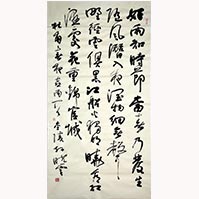 好雨知時節當春乃發生
隨風潛入夜潤物細無聲
野徑雲俱黑江船火獨明曉看紅
濕處花重錦官城
杜甫春夜喜雨